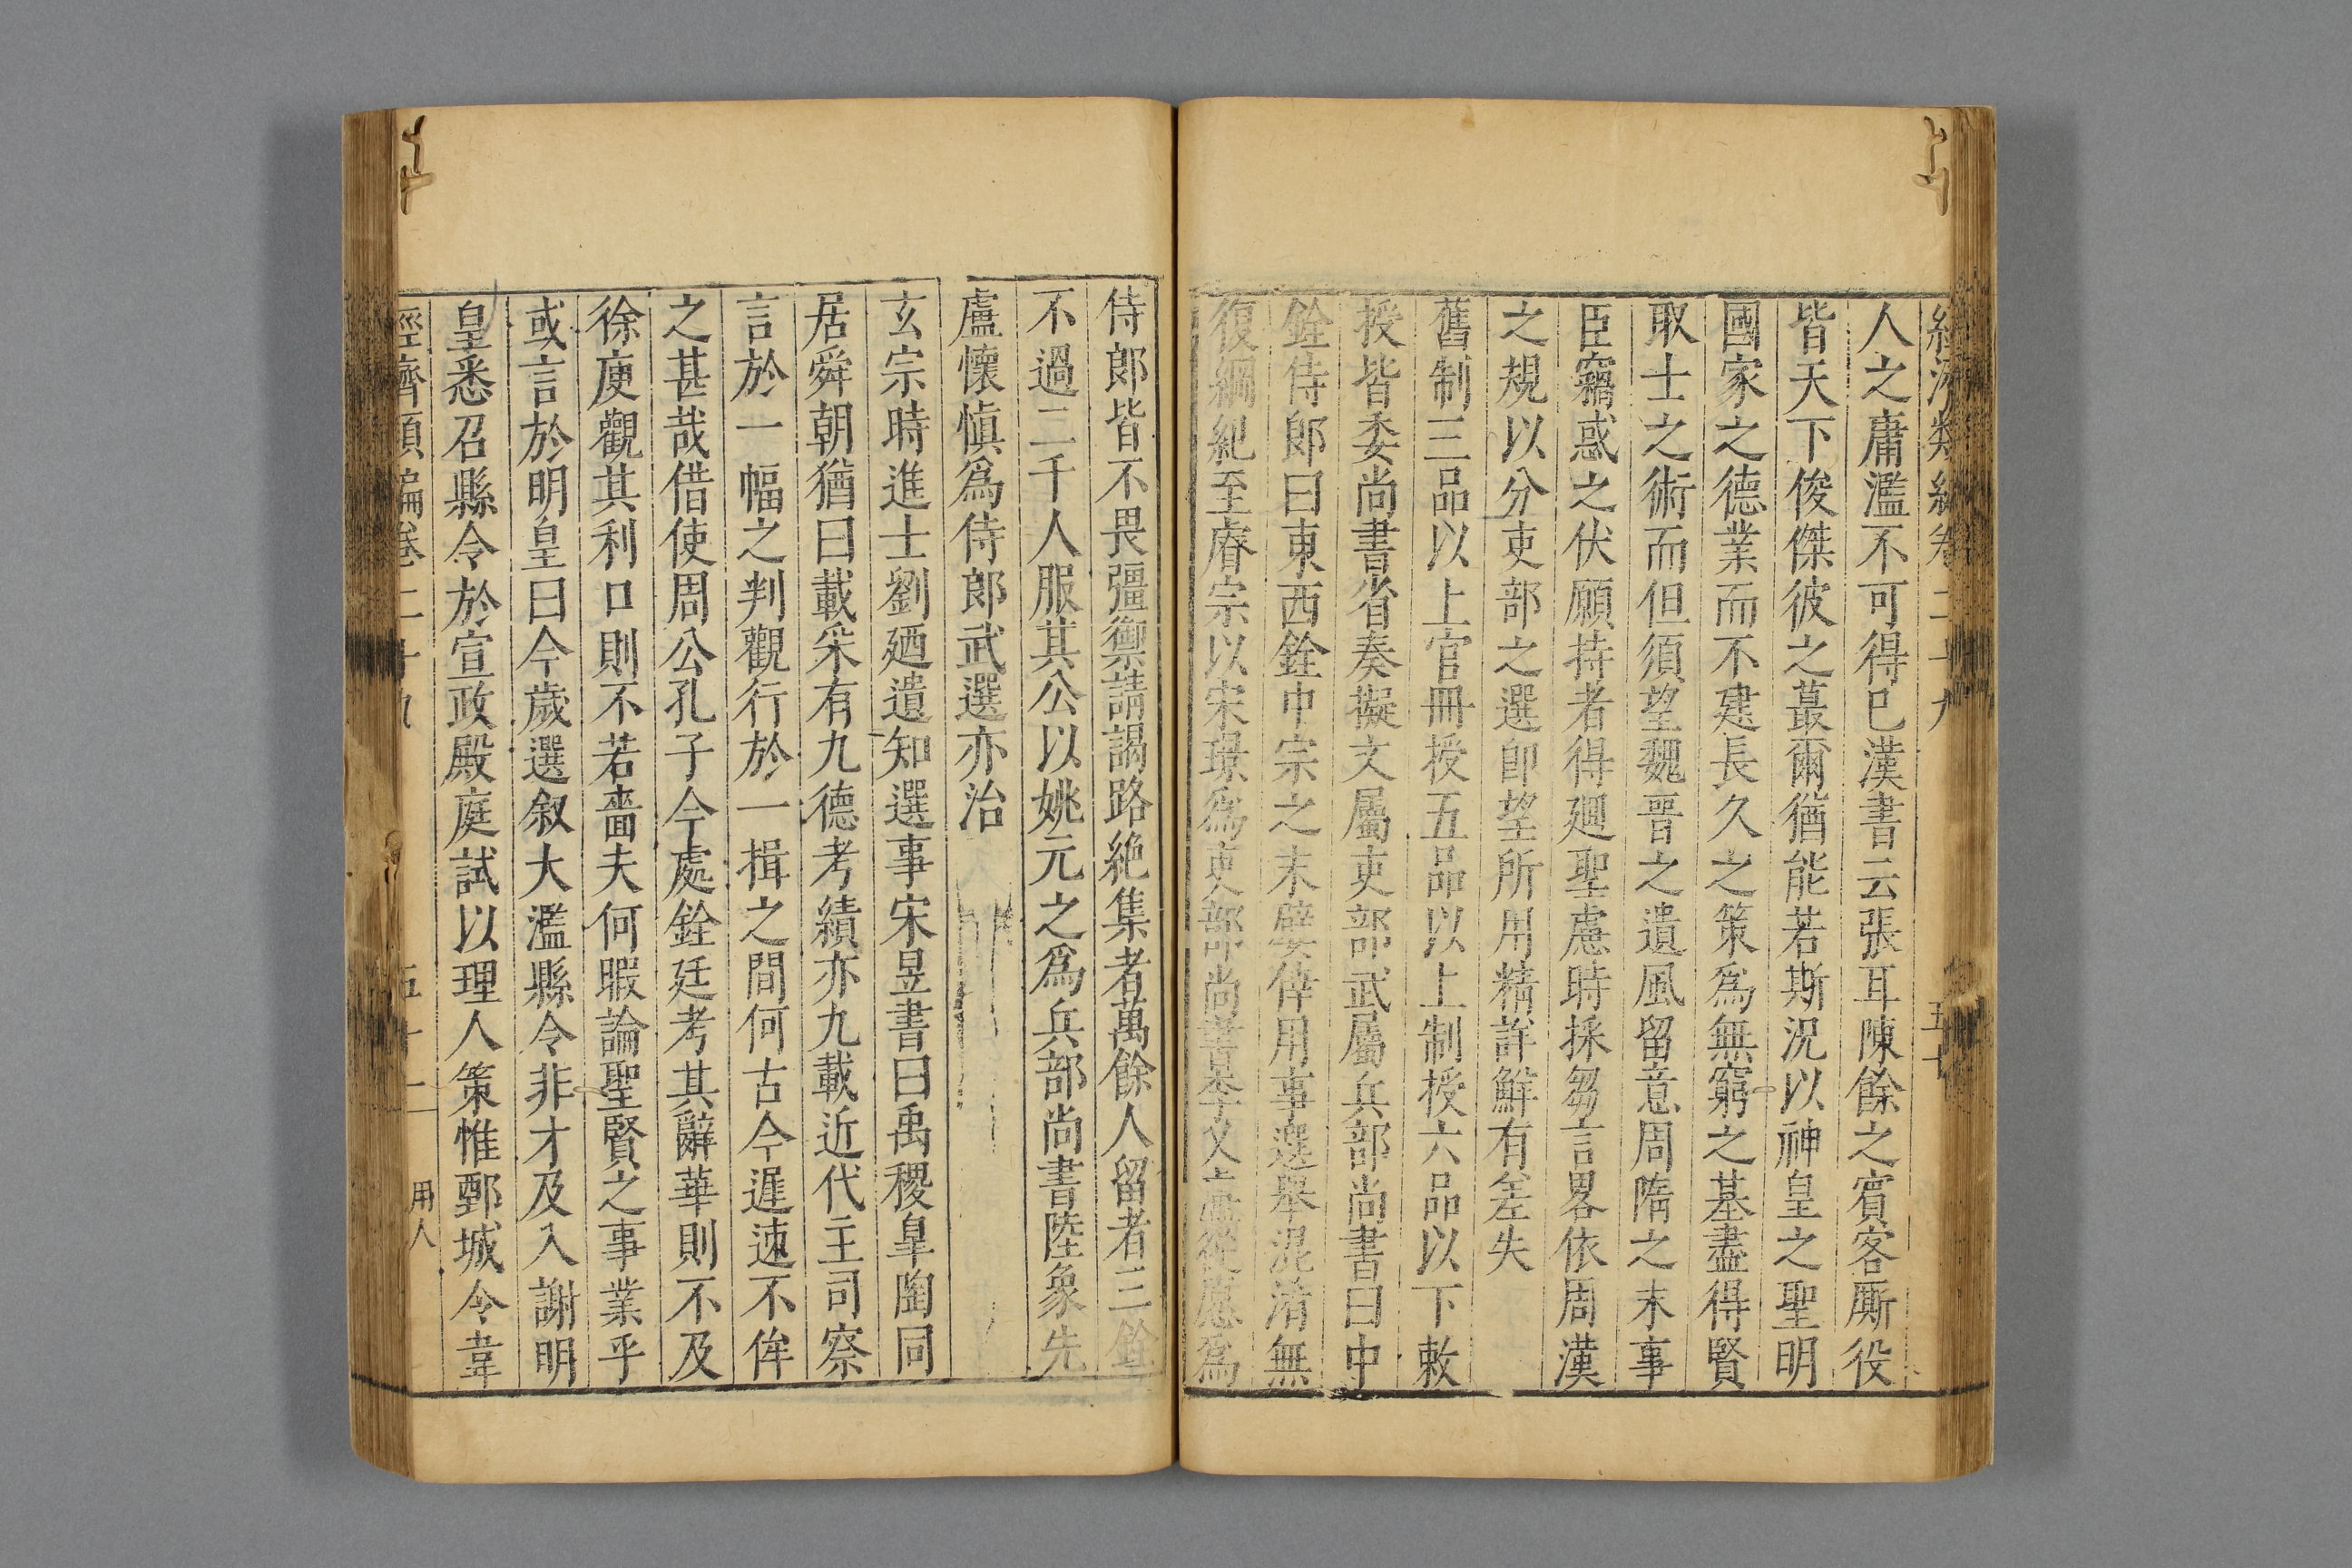 人之庸濫不可得已漢書云張耳陳餘之賓客厮役
皆天下俊傑彼之蕞爾猶能若斯況以神皇之聖明
國家之德業而不建長久之策爲無窮之基盡得賢
取士之術而但須望魏晉之遺風留意周隋之末事
臣竊惑之伏願持者得廻聖慮時採芻言畧依周漢
之規以分吏部之選卽望所用精詳鮮有差失
舊制三品以上官冊授五品以上制授六品以下敕
授皆委尚書省奏擬文屬吏部武屬兵部尚書曰中
銓侍郎曰東西銓中宗之末嬖倖用事選舉混淆無
復綱紀至睿宗以宋璟爲吏部尚書李乂盧從愿爲
侍郎皆不畏彊禦請謁路絶集者萬餘人留者三銓
不過二千人服其公以姚元之爲兵部尚書陸象先
盧懷愼爲侍郎武選亦治
玄宗時進士劉廼遺知選事宋昱書曰禹稷臯陶同
居舜朝猶曰載采有九德考績亦九載近代主司察
言於一幅之判觀行於一揖之間何古今遲速不侔
之甚哉借使周公孔子今處銓廷考其辭華則不及
徐庾觀其利口則不若嗇夫何暇論聖賢之事業乎
或言於明皇曰今歲選叙大濫縣令非才及入謝明
皇悉召縣令於宣政殿庭試以理人策惟鄄城令韋
經濟類編卷二十九 五十二 用人